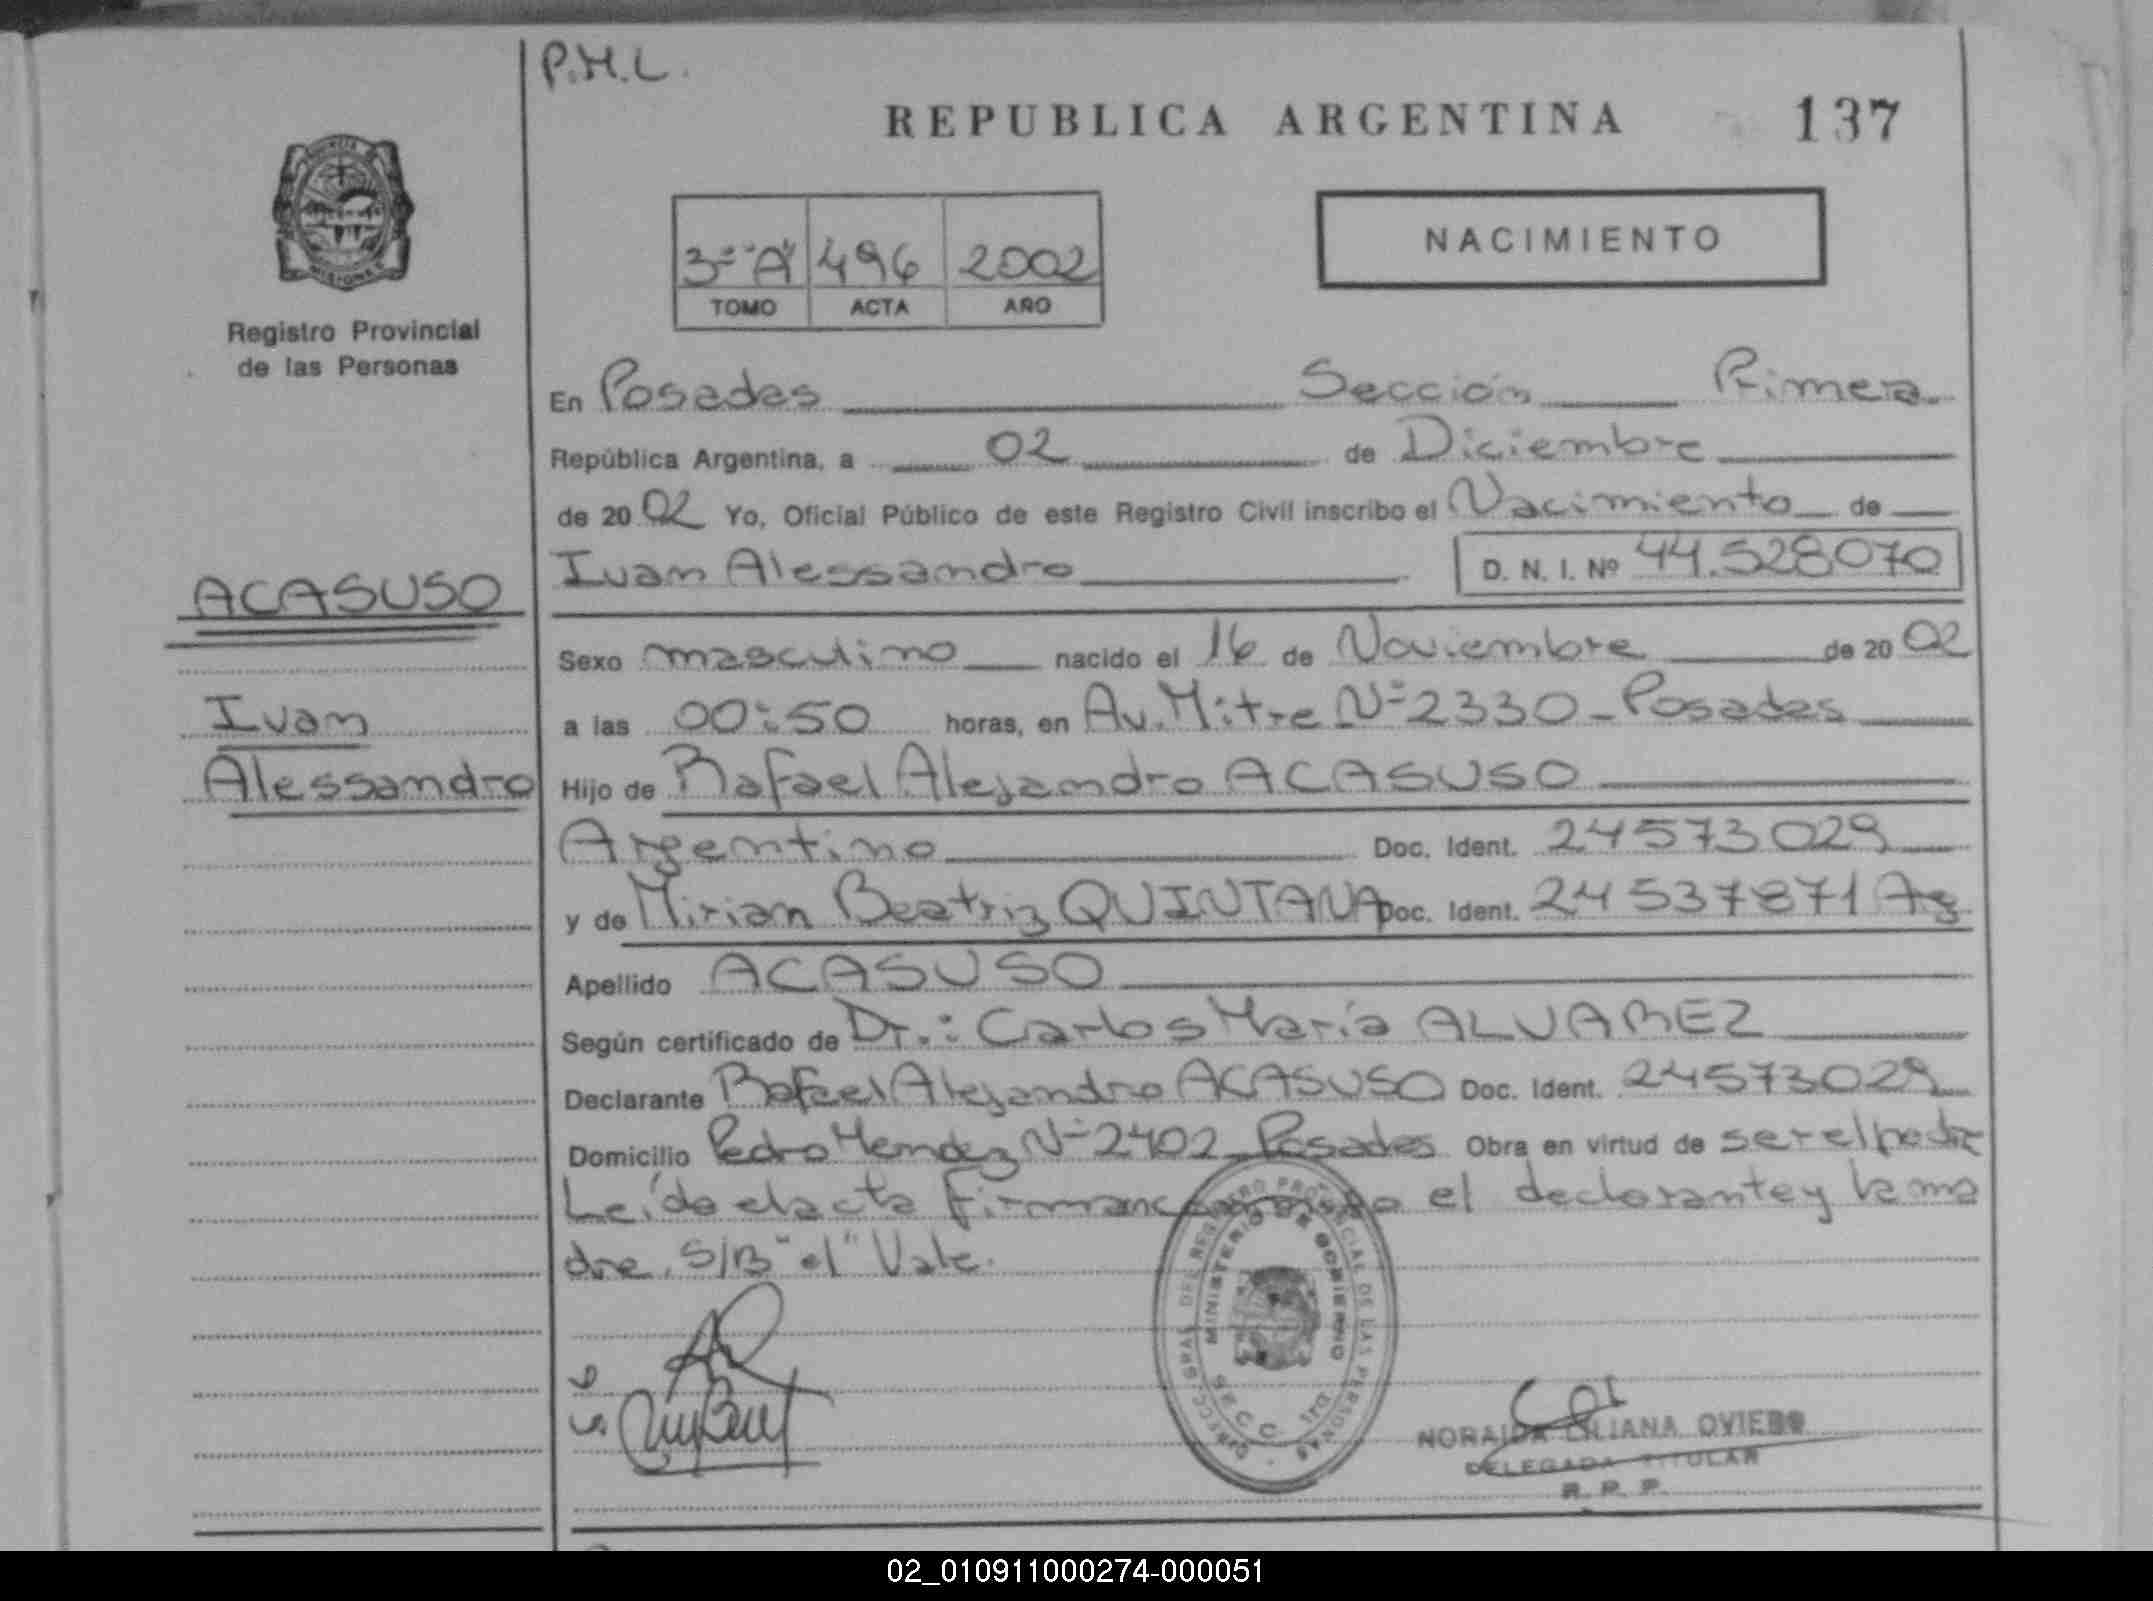 P.M.L.
REPUBLICA ARGENTINA 137
MISIONES
Registro Provincial
de las Personas
3º "A" 496 2002
TOMO ACTA AÑO
NACIMIENTO
En Posadas Sección Primera
República Argentina, a 02 de Diciembre
de 2002 Yo, Oficial Público de este Registro Civil inscribo el Nacimiento de
Ivan Alessandro D. N. I. Nº 44.528070
ACASUSO
Sexo masculino nacido el 16 de Noviembre de 2002
Ivan
a las 00:50 horas, en Av. Mitre Nº 2330 - Posadas
Alessandro
Hijo de Rafael Alejandro ACASUSO
Argentino Doc. Ident. 24573029
y de Mirian Beatriz QUINTANA Doc. Ident. 24537871 Ag
Apellido ACASUSO
Según certificado de Dr.: Carlos María ALVAREZ
Declarante Rafael Alejandro ACASUSO Doc. Ident. 24573029
Domicilio Pedro Mendez Nº 2402 - Posadas Obra en virtud de ser el padre
Leída el acta firman el declarante y la ma
dre. S/B "el" Vale.
DIRECC. GRAL. DEL REGISTRO PROVINCIAL DE LAS PERSONAS
MINISTERIO DE GOBIERNO
SECC. 1ra
NORAIDA LILIANA OVIEDO
DELEGADA TITULAR
R. P. P.
02_010911000274-000051